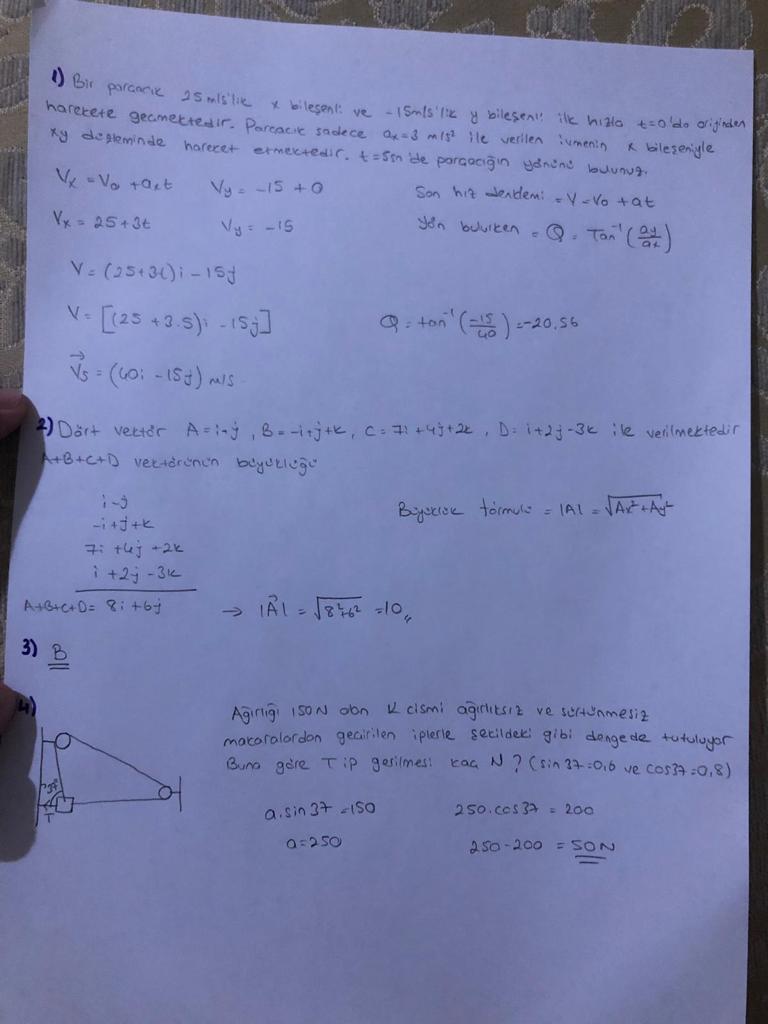 1) Bir parçacık 25 m/s'lik x bileşenli ve -15m/s'lik y bileşenli ilk hızla t=0'da orijinden
harekete geçmektedir. Parçacık sadece ax=3 m/s² ile verilen ivmenin x bileşeniyle
xy düzleminde hareket etmektedir. t=5sn'de parçacığın yönünü bulunuz.
Vx = Vo + axt Vy = -15 + 0 Son hız denklemi = V = Vo + at
Vx = 25 + 3t Vy = -15 Yön bulurken = Q = Tan⁻¹ (ay/ax)
V = (25+3t)i - 15j
V = [(25 + 3.5)i - 15j] Q = tan⁻¹ (-15/40) = -20,56
V⃗5 = (40i - 15j) m/s
2) Dört vektör A = i-j, B = -i+j+k, C = 7i + 4j + 2k, D = i+2j-3k ile verilmektedir
A+B+C+D vektörünün büyüklüğü
i-j Büyüklük formülü = |A| = √Ax²+Ay²
-i+j+k
7i +4j +2k
i +2j -3k
A+B+C+D = 8i + 6j → |A⃗| = √8²+6² = 10
3) B
4) Ağırlığı 150N olan K cismi ağırlıksız ve sürtünmesiz
makaralardan geçirilen iplerle şekildeki gibi dengede tutuluyor
Buna göre T ip gerilmesi kaç N? (sin 37=0,6 ve cos37=0,8)
37°
T
a.sin 37 = 150 250.cos37 = 200
a = 250 250-200 = 50N